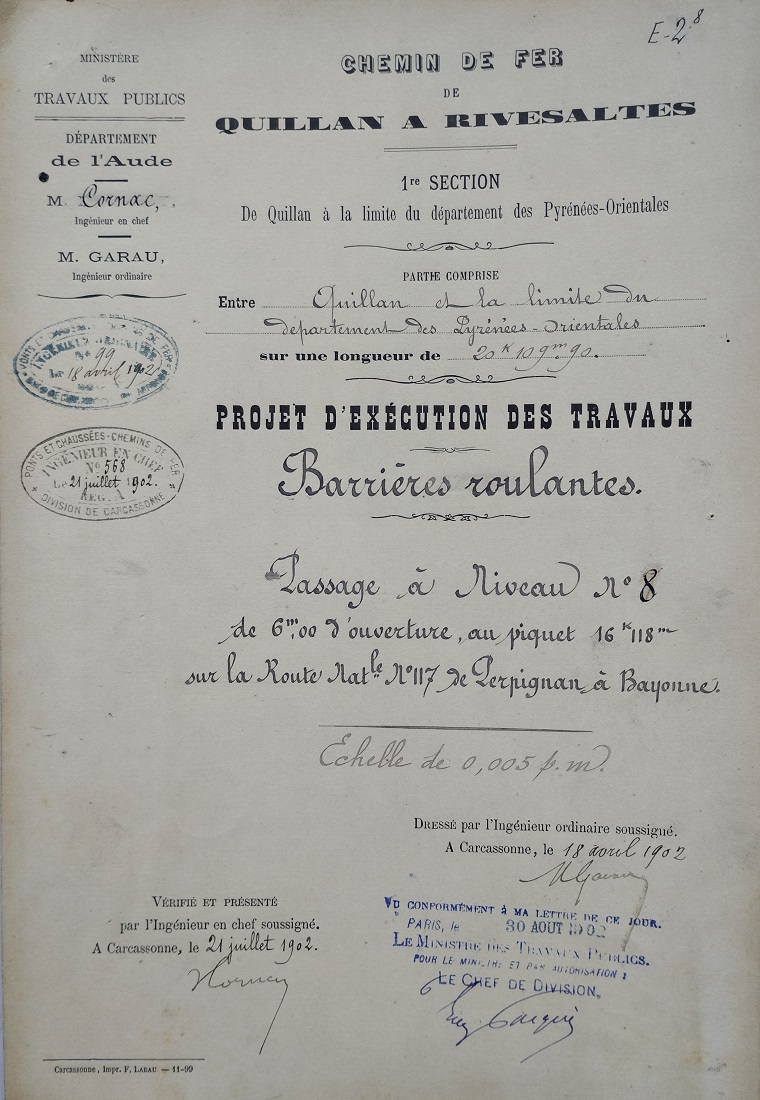 E-2 8
MINISTÈRE
des
TRAVAUX PUBLICS
DÉPARTEMENT
de l'Aude
M. Cornac,
Ingénieur en chef
M. GARAU,
Ingénieur ordinaire
N° 99
Le 18 avril 1902
PONTS ET CHAUSSÉES - CHEMINS DE FER
INGÉNIEUR EN CHEF
N° 568
Le 21 juillet 1902.
REG. A
DIVISION DE CARCASSONNE
CHEMIN DE FER
DE
QUILLAN A RIVESALTES
1re SECTION
De Quillan à la limite du département des Pyrénées-Orientales
PARTIE COMPRISE
Entre Quillan et la limite du
département des Pyrénées-Orientales
sur une longueur de 20k 109m 90.
PROJET D'EXÉCUTION DES TRAVAUX
Barrières roulantes.
Passage à Niveau N° 8
de 6m,00 d'ouverture, au piquet 16k 118m
sur la Route Natle N° 117 de Perpignan à Bayonne.
Echelle de 0,005 p.m.
DRESSÉ par l'Ingénieur ordinaire soussigné.
A Carcassonne, le 18 avril 1902
VÉRIFIÉ ET PRÉSENTÉ
par l'Ingénieur en chef soussigné.
A Carcassonne, le 21 juillet 1902.
VU CONFORMÉMENT à MA LETTRE DE CE JOUR.
PARIS, le 30 AOUT 1902
LE MINISTRE DES TRAVAUX PUBLICS.
POUR LE MINISTRE ET PAR AUTORISATION :
LE CHEF DE DIVISION,
Carcassonne, Impr. F. LABAU — 11-99